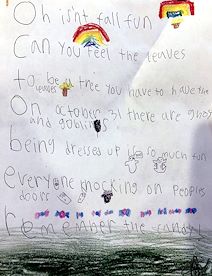 Oh isn't fall fun
Can you feel the leaves
to be a tree you have to have the
leaves
On october 31 there are ghos
and goblins
being dressed up is so much fun
everyone knocking on peoples
doors
remember the candy